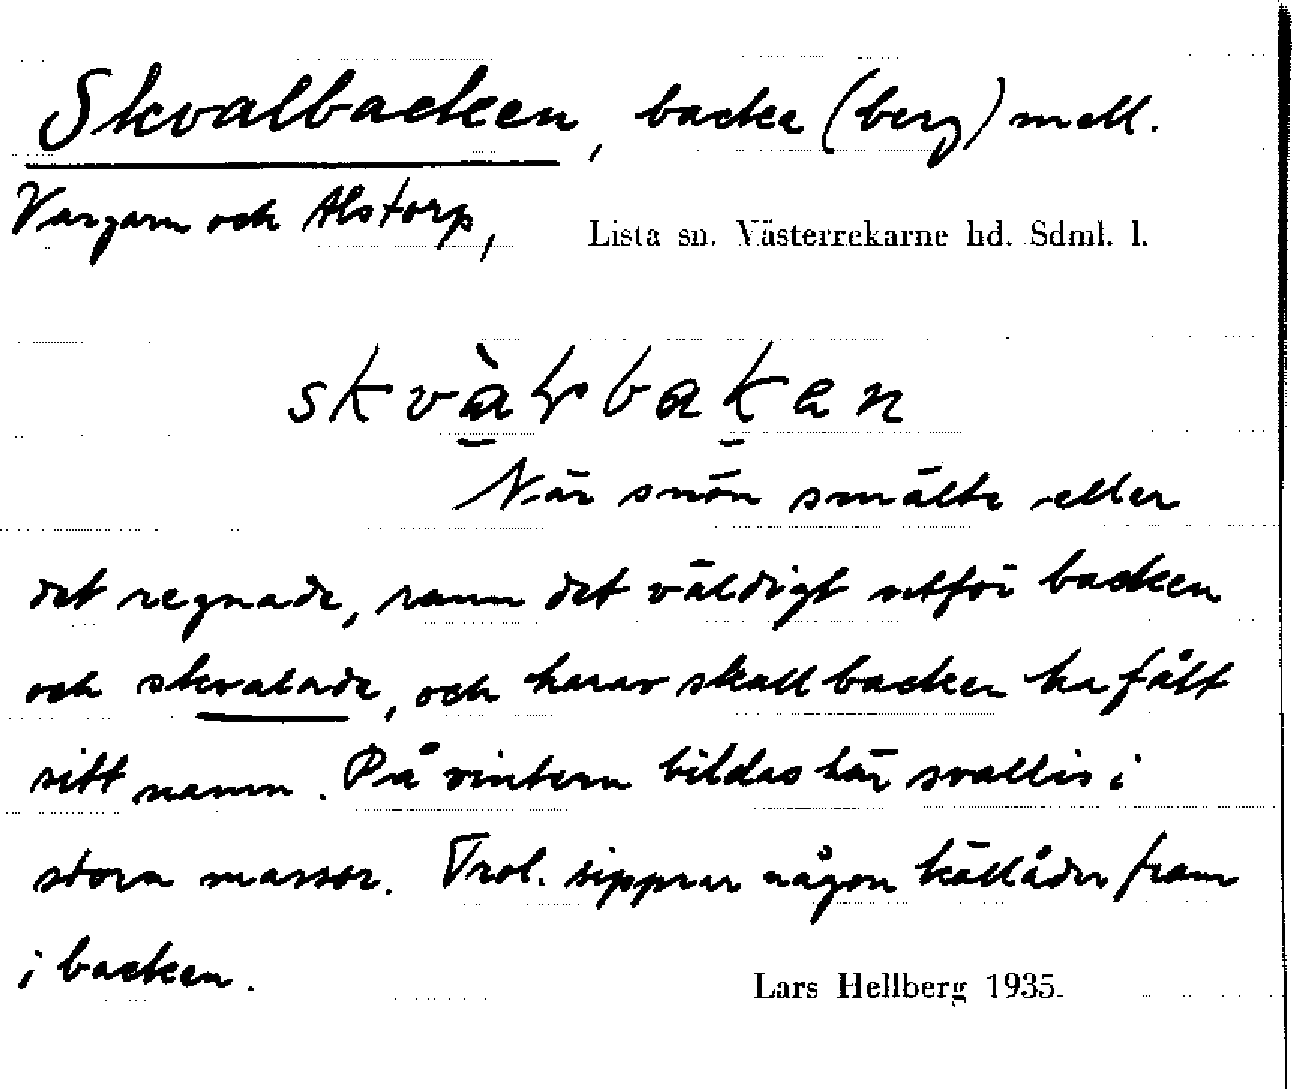 Skvalbacken, backe (berg) mell.
Vargarn och Alstorp,
Lista sn. Västerrekarne hd. Sdml. l.
När snön smälte eller
det regnade, rann det väldigt utför backen
och skvalade, och härav skall backen ha fått
sitt namn. På vintern bildas här svallis i
stora massor. Trol. sipprar någon källåder fram
i backen.
Lars Hellberg 1935.